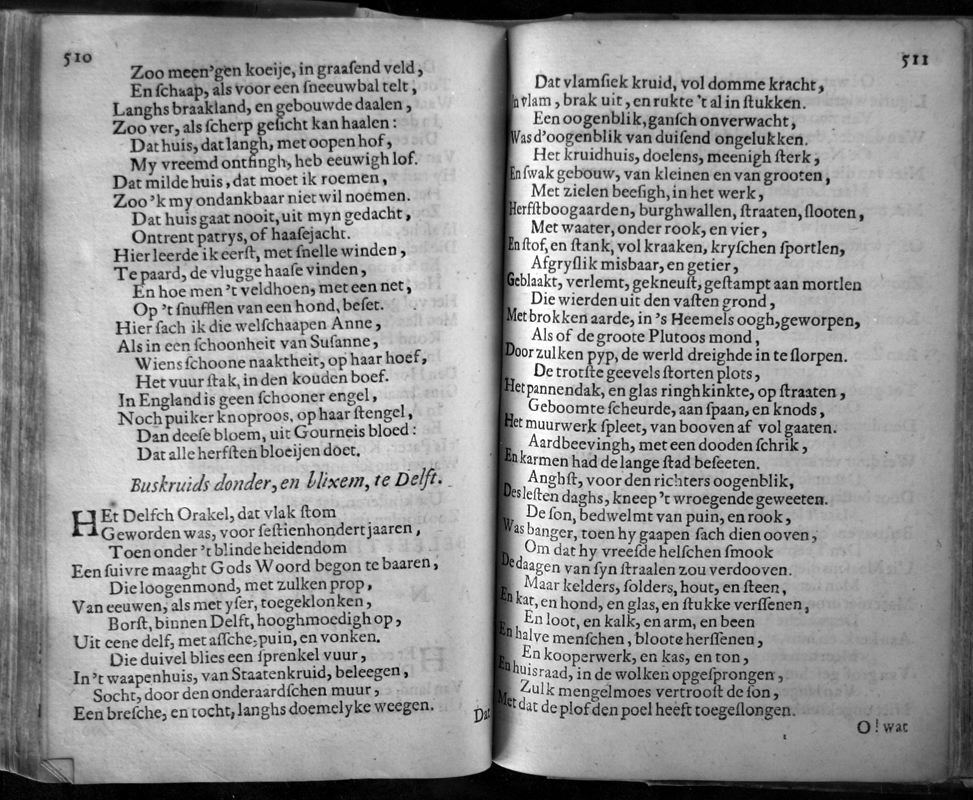 510
Zoo meen'gen koeije, in graaſend veld,
En ſchaap, als voor een ſneeuwbal telt,
Langhs braakland, en gebouwde daalen,
Zoo ver, als ſcherp geſicht kan haalen:
Dat huis, dat langh, met oopen hof,
My vreemd ontfingh, heb eeuwigh lof.
Dat milde huis, dat moet ik roemen,
Zoo 'k my ondankbaar niet wil noemen.
Dat huis gaat nooit, uit myn gedacht,
Ontrent patrys, of haaſejacht.
Hier leerde ik eerſt, met ſnelle winden,
Te paard, de vlugge haaſe vinden,
En hoe men 't veldhoen, met een net,
Op 't ſnufflen van een hond, beſet.
Hier ſach ik die welſchaapen Anne,
Als in een ſchoonheit van Suſanne,
Wiens ſchoone naaktheit, op haar hoef,
Het vuur ſtak, in den kouden boef.
In England is geen ſchooner engel,
Noch puiker knoproos, op haar ſtengel,
Dan deeſe bloem, uit Gourneis bloed:
Dat alle herfſten bloeijen doet.
Buskruids donder, en blixem, te Delft.
HEt Delfſch Orakel, dat vlak ſtom
Geworden was, voor ſeſtienhondert jaaren,
Toen onder 't blinde heidendom
Een ſuivre maaght Gods Woord begon te baaren,
Die loogenmond, met zulken prop,
Van eeuwen, als met yſer, toegeklonken,
Borſt, binnen Delft, hooghmoedigh op,
Uit eene delf, met aſſche, puin, en vonken.
Die duivel blies een ſprenkel vuur,
In 't waapenhuis, van Staatenkruid, beleegen,
Socht, door den onderaardſchen muur,
Een breſche, en tocht, langhs doemelyke weegen.
Dat
511
Dat vlamſiek kruid, vol domme kracht,
In vlam, brak uit, en rukte 't al in ſtukken.
Een oogenblik, ganſch onverwacht,
Was d'oogenblik van duiſend ongelukken.
Het kruidhuis, doelens, meenigh ſterk,
En ſwak gebouw, van kleinen en van grooten,
Met zielen beeſigh, in het werk,
Herfſtboogaarden, burghwallen, ſtraaten, ſlooten,
Met waater, onder rook, en vier,
En ſtof, en ſtank, vol kraaken, kryſchen ſportlen,
Afgryſlik misbaar, en getier,
Geblaakt, verlemt, gekneuſt, geſtampt aan mortlen
Die wierden uit den vaſten grond,
Met brokken aarde, in 's Heemels oogh, geworpen,
Als of de groote Plutoos mond,
Door zulken pyp, de werld dreighde in te ſlorpen.
De trotſte geevels ſtorten plots,
Het pannendak, en glas ringhkinkte, op ſtraaten,
Geboomte ſcheurde, aan ſpaan, en knods,
Het muurwerk ſpleet, van booven af vol gaaten.
Aardbeevingh, met een dooden ſchrik,
En karmen had de lange ſtad beſeeten.
Anghſt, voor den richters oogenblik,
Des leſten daghs, kneep 't wroegende geweeten.
De ſon, bedwelmt van puin, en rook,
Was banger, toen hy gaapen ſach dien ooven,
Om dat hy vreeſde helſchen ſmook
De daagen van ſyn ſtraalen zou verdooven.
Maar kelders, ſolders, hout, en ſteen,
En kat, en hond, en glas, en ſtukke verſſenen,
En loot, en kalk, en arm, en been
En halve menſchen, bloote herſſenen,
En kooperwerk, en kas, en ton,
En huisraad, in de wolken opgeſprongen,
Zulk mengelmoes vertrooſt de ſon,
Met dat de plof den poel heeft toegeſlongen.
O! wat